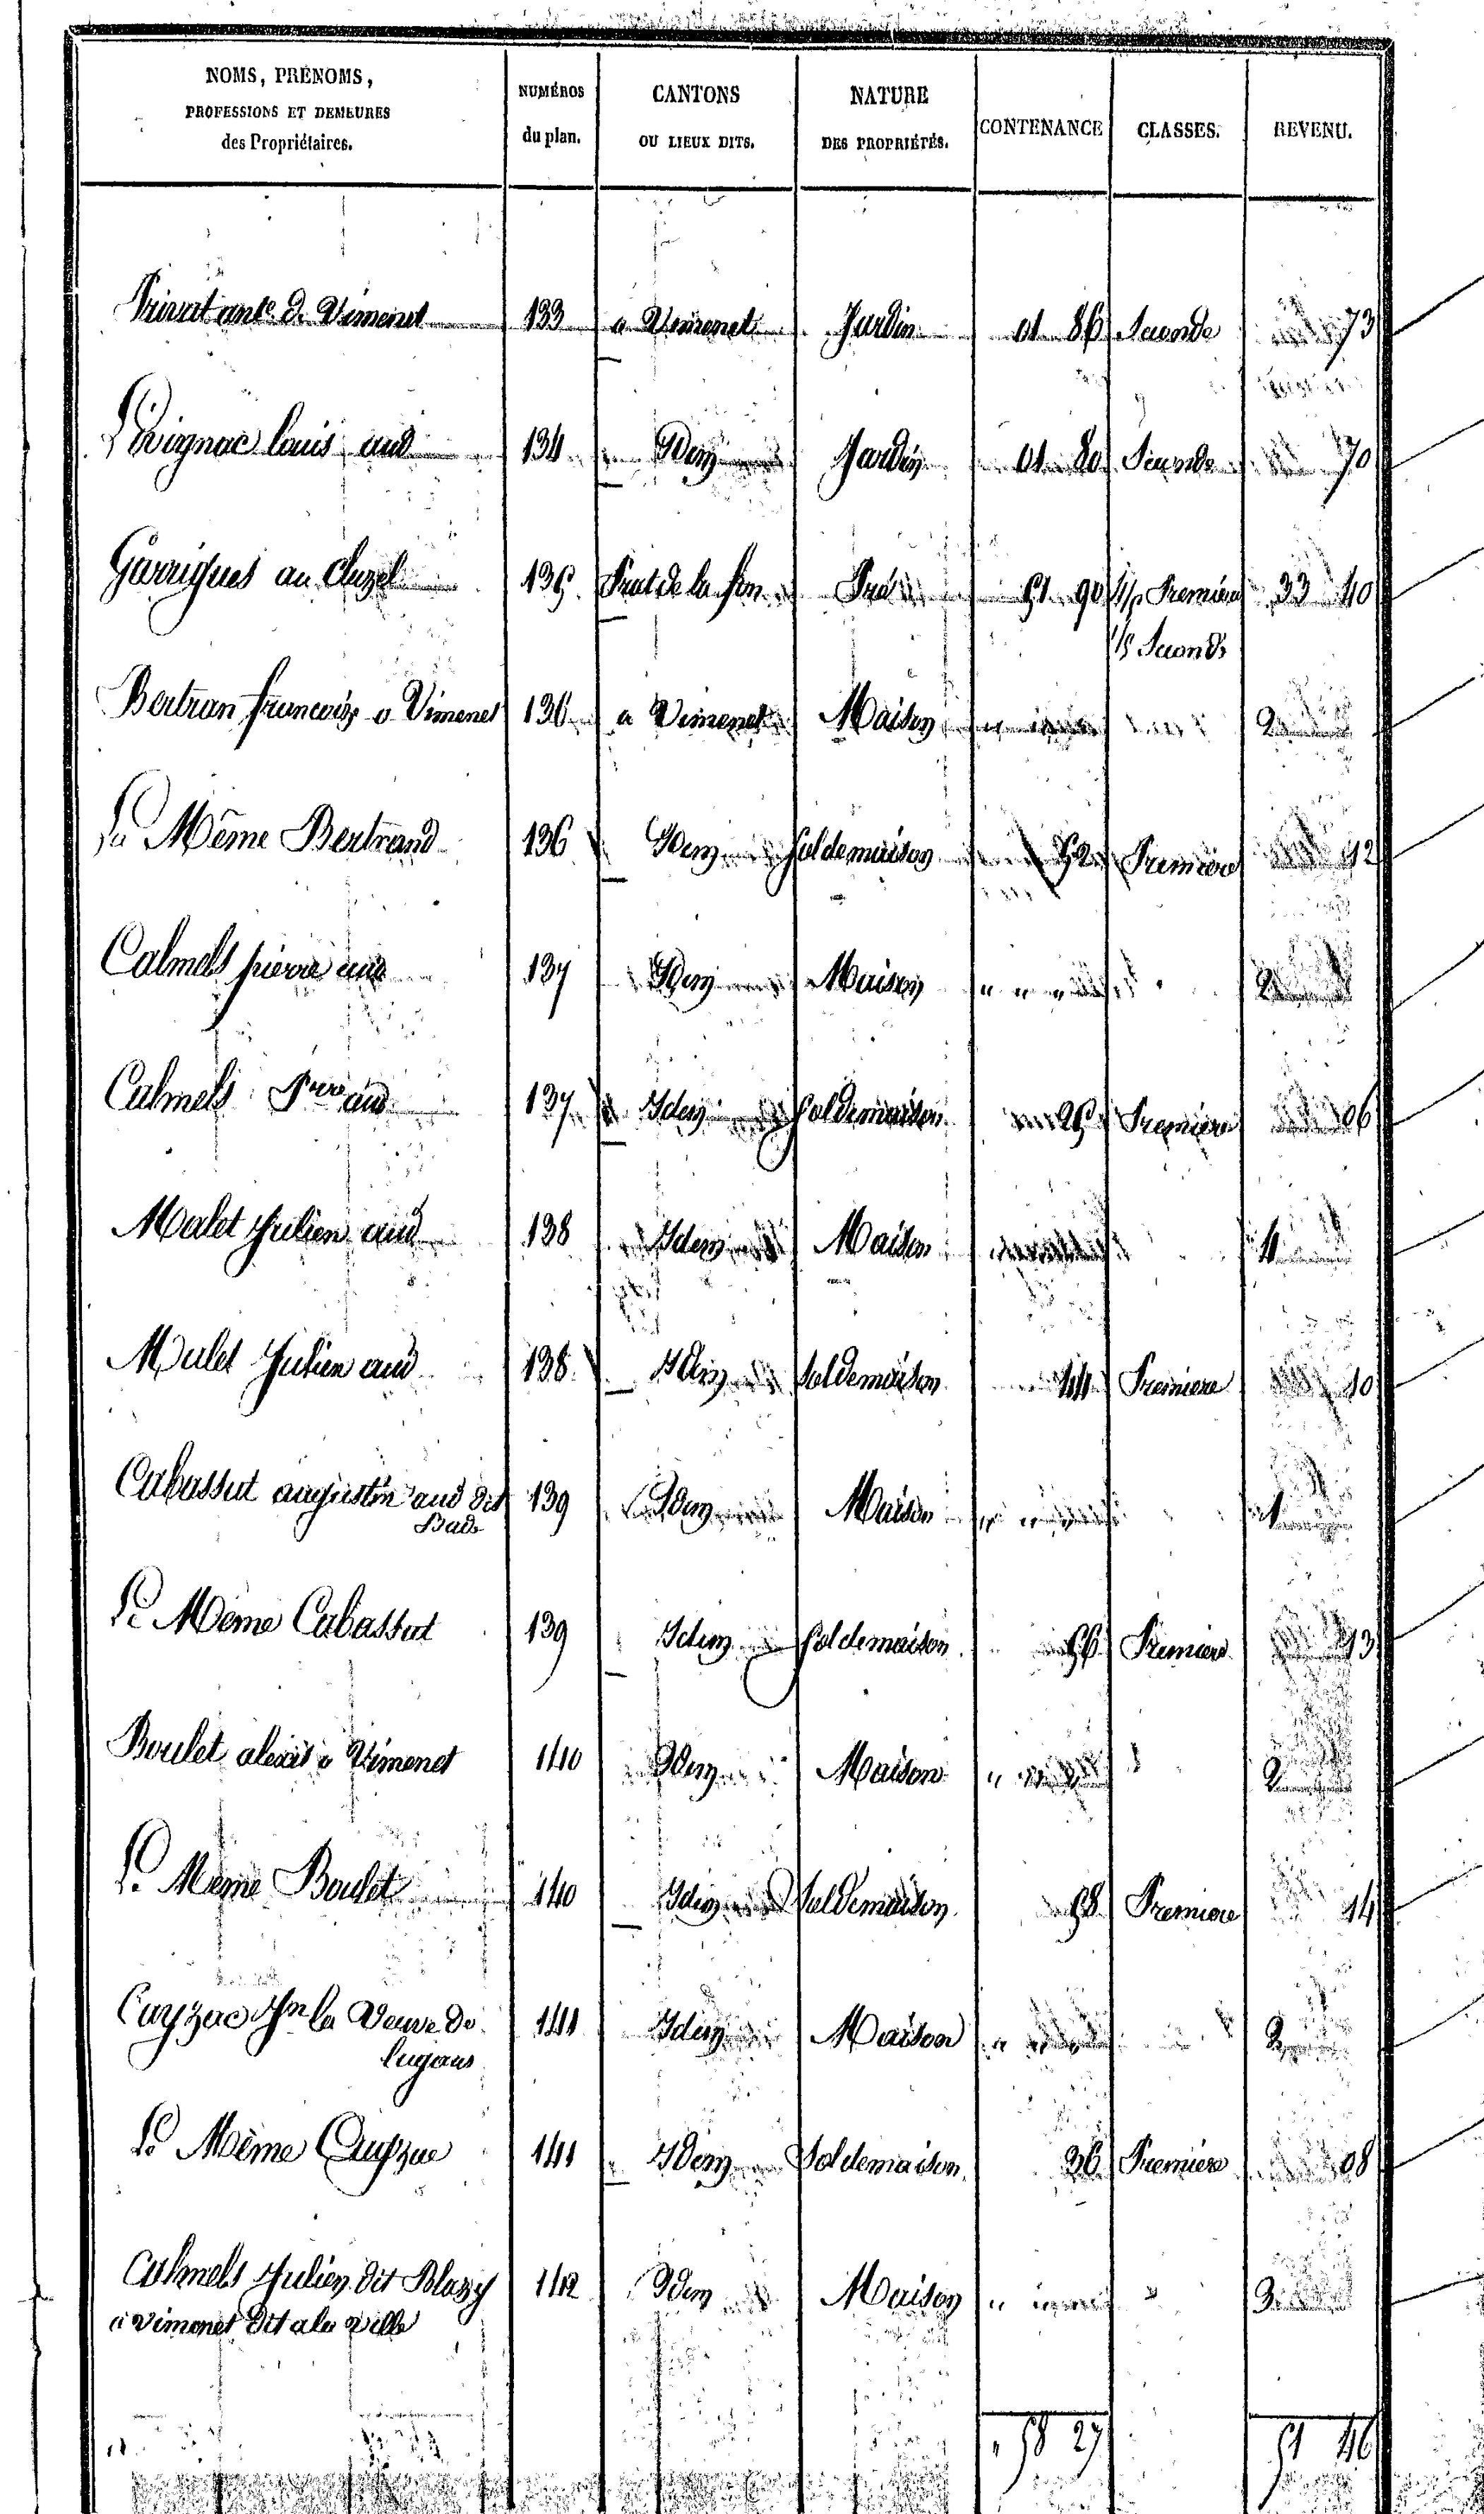 NOMS, PRÉNOMS, PROFESSIONS ET DEMEURES des Propriétaires. NUMÉROS du plan. CANTONS OU LIEUX DITS. NATURE DES PROPRIÉTÉS. CONTENANCE CLASSES. REVENU.
Privat ante de Vimenet 133 a Vimenet Jardin 01 86 Seconde 73
louis aud 134 Idem Jardin 01 80 Seconde 70
Garrigues au Cluzel 135 Prat de la fon Pré 51 90 Premiere 33 40
Seconde
Bertran francois a Vimenet 136 a Vimenet Maison 2
Le Même Bertrand 136 Idem Sol de maison 52 Premiere 12
Calmels pierre aud 137 Idem Maison 2
Calmels Prre aud 137 Idem Sol de maison 25 Premiere 06
Malet Julien aud 138 Idem Maison 4
Malet Julien aud 138 Idem Sol de maison 44 Premiere 10
Cabassut augustin aud dit 139 Idem Maison
Le Même Cabassut 139 Idem Sol de maison 56 Premiere 13
Boulet alexis a Vimenet 140 Idem Maison 2
Le Même Boulet 140 Idem Sol de maison 58 Premiere 14
Cayzac Jn la Veuve de 141 Idem Maison 2
Le Même Cayzac 141 Idem Sol de maison 36 Premiere 08
Calmels Julien dit Blazy 142 Idem Maison 3
a Vimenet dit a la ville
58 27 51 46